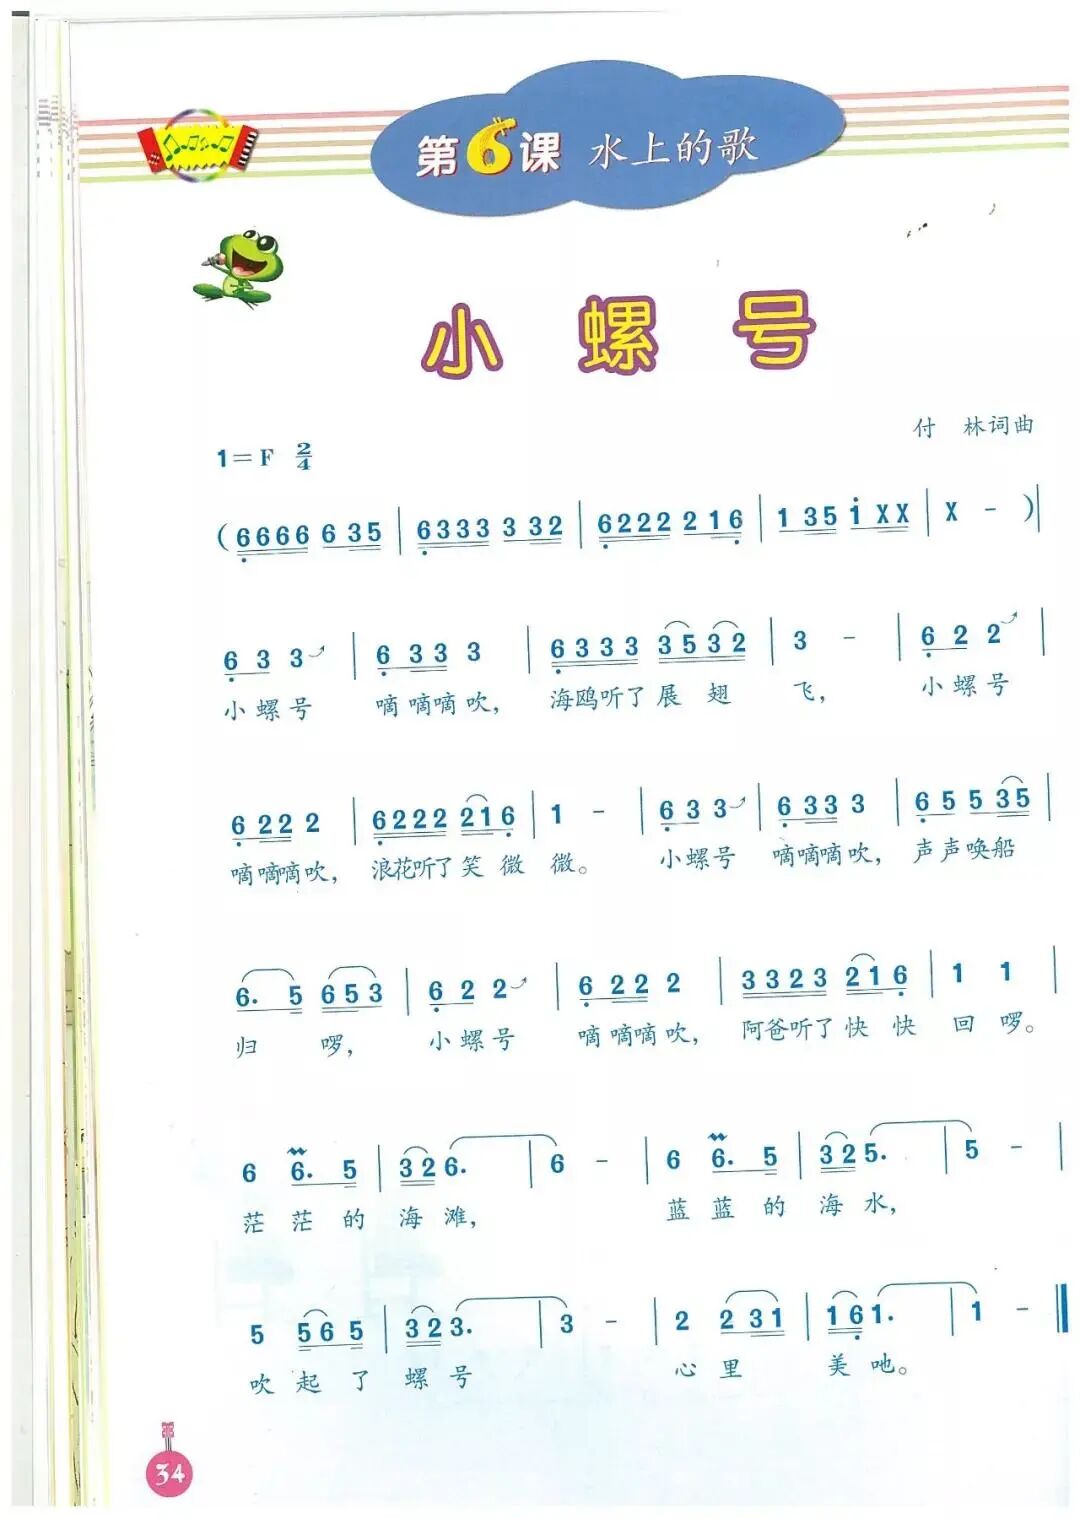 第6课 水上的歌
小螺号
付 林词曲
1=F 2/4
(6666 635 | 6333 332 | 6222 216 | 135 i XX | X - )|
6 3 3 | 6 33 3 | 6333 3532 | 3 - | 6 2 2 |
小螺号 嘀嘀嘀吹， 海鸥听了展翅 飞， 小螺号
6 22 2 | 6222 216 | 1 - | 6 3 3 | 6 33 3 | 6 5 5 35 |
嘀嘀嘀吹， 浪花听了笑微 微。 小螺号 嘀嘀嘀吹， 声声唤船
6. 5 653 | 6 2 2 | 6 22 2 | 3323 216 | 1 1 |
归 啰， 小螺号 嘀嘀嘀吹， 阿爸听了快快 回啰。
6 6. 5 | 32 6. | 6 - | 6 6. 5 | 32 5. | 5 - |
茫茫的 海滩， 蓝蓝的 海水，
5 565 | 323. | 3 - | 2 231 | 161. | 1 - ‖
吹起了 螺号 心里 美吔。
34